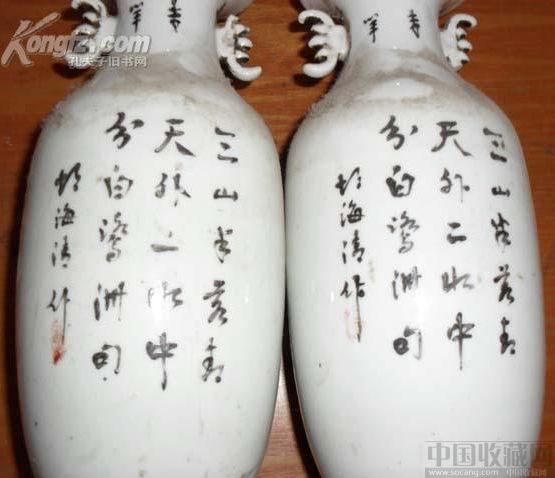 Kongfz.com
孔夫子旧书网
三山半落青
天外二水中
分白鷺洲句
胡海清作
三山半落青
天外二水中
分白鷺洲句
胡海清作
中国收藏网
www.socang.com